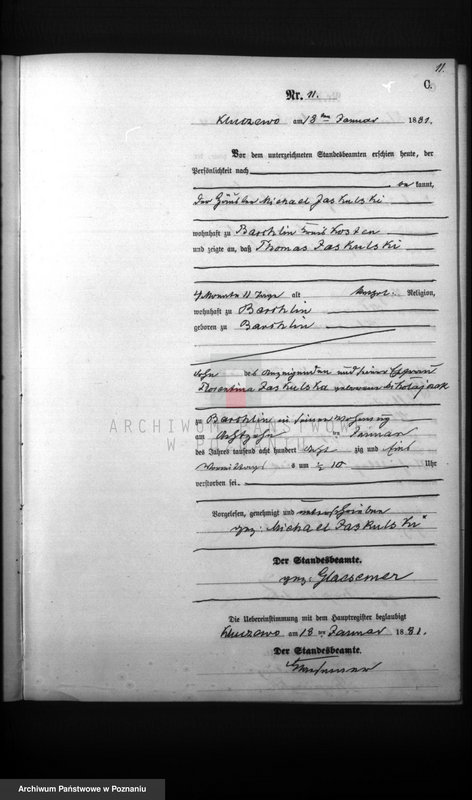 11.
C.
Nr. 11.
Kluczewo am 18ten Januar 1881.
Vor dem unterzeichneten Standesbeamten erschien heute, der
Persönlichkeit nach
be kannt,
der Häusler Michael Jaskulski
wohnhaft zu Barchlin Kreis Kosten
und zeigte an, daß Thomas Jaskulski
4 Monate 11 Tage alt kathol. Religion,
wohnhaft zu Barchlin
geboren zu Barchlin
Sohn des Anzeigenden und seiner Ehefrau
Florentina Jaskulska geborenen
zu Barchlin in seiner Wohnung
am Achtzehn ten Januar
des Jahres tausend acht hundert Acht zig und Eins
Vormittags um ½ 10 Uhr
verstorben sei.
Vorgelesen, genehmigt und unterschrieben
gez: Michael Jaskulski"
Der Standesbeamte.
gez: Glassemer
Die Uebereinstimmung mit dem Hauptregister beglaubigt
Kluczewo am 18 ten Januar 1881.
Der Standesbeamte.
ARCHIWUM PAŃSTWOWE
W POZNANIU
Archiwum Państwowe w Poznaniu